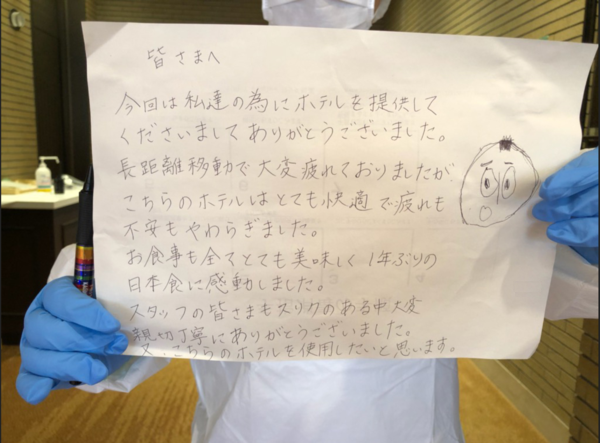 皆さまへ
今回は私達の為にホテルを提供して
くださいましてありがとうございました。
長距離移動で大変疲れておりましたが
こちらのホテルはとても快適で疲れも
不安もやわらぎました。
お食事も全てとても美味しく1年ぶりの
日本食に感動しました。
スタッフの皆さまもリスクのある中大変
親切丁寧にありがとうございました。
又、こちらのホテルを使用したいと思います。